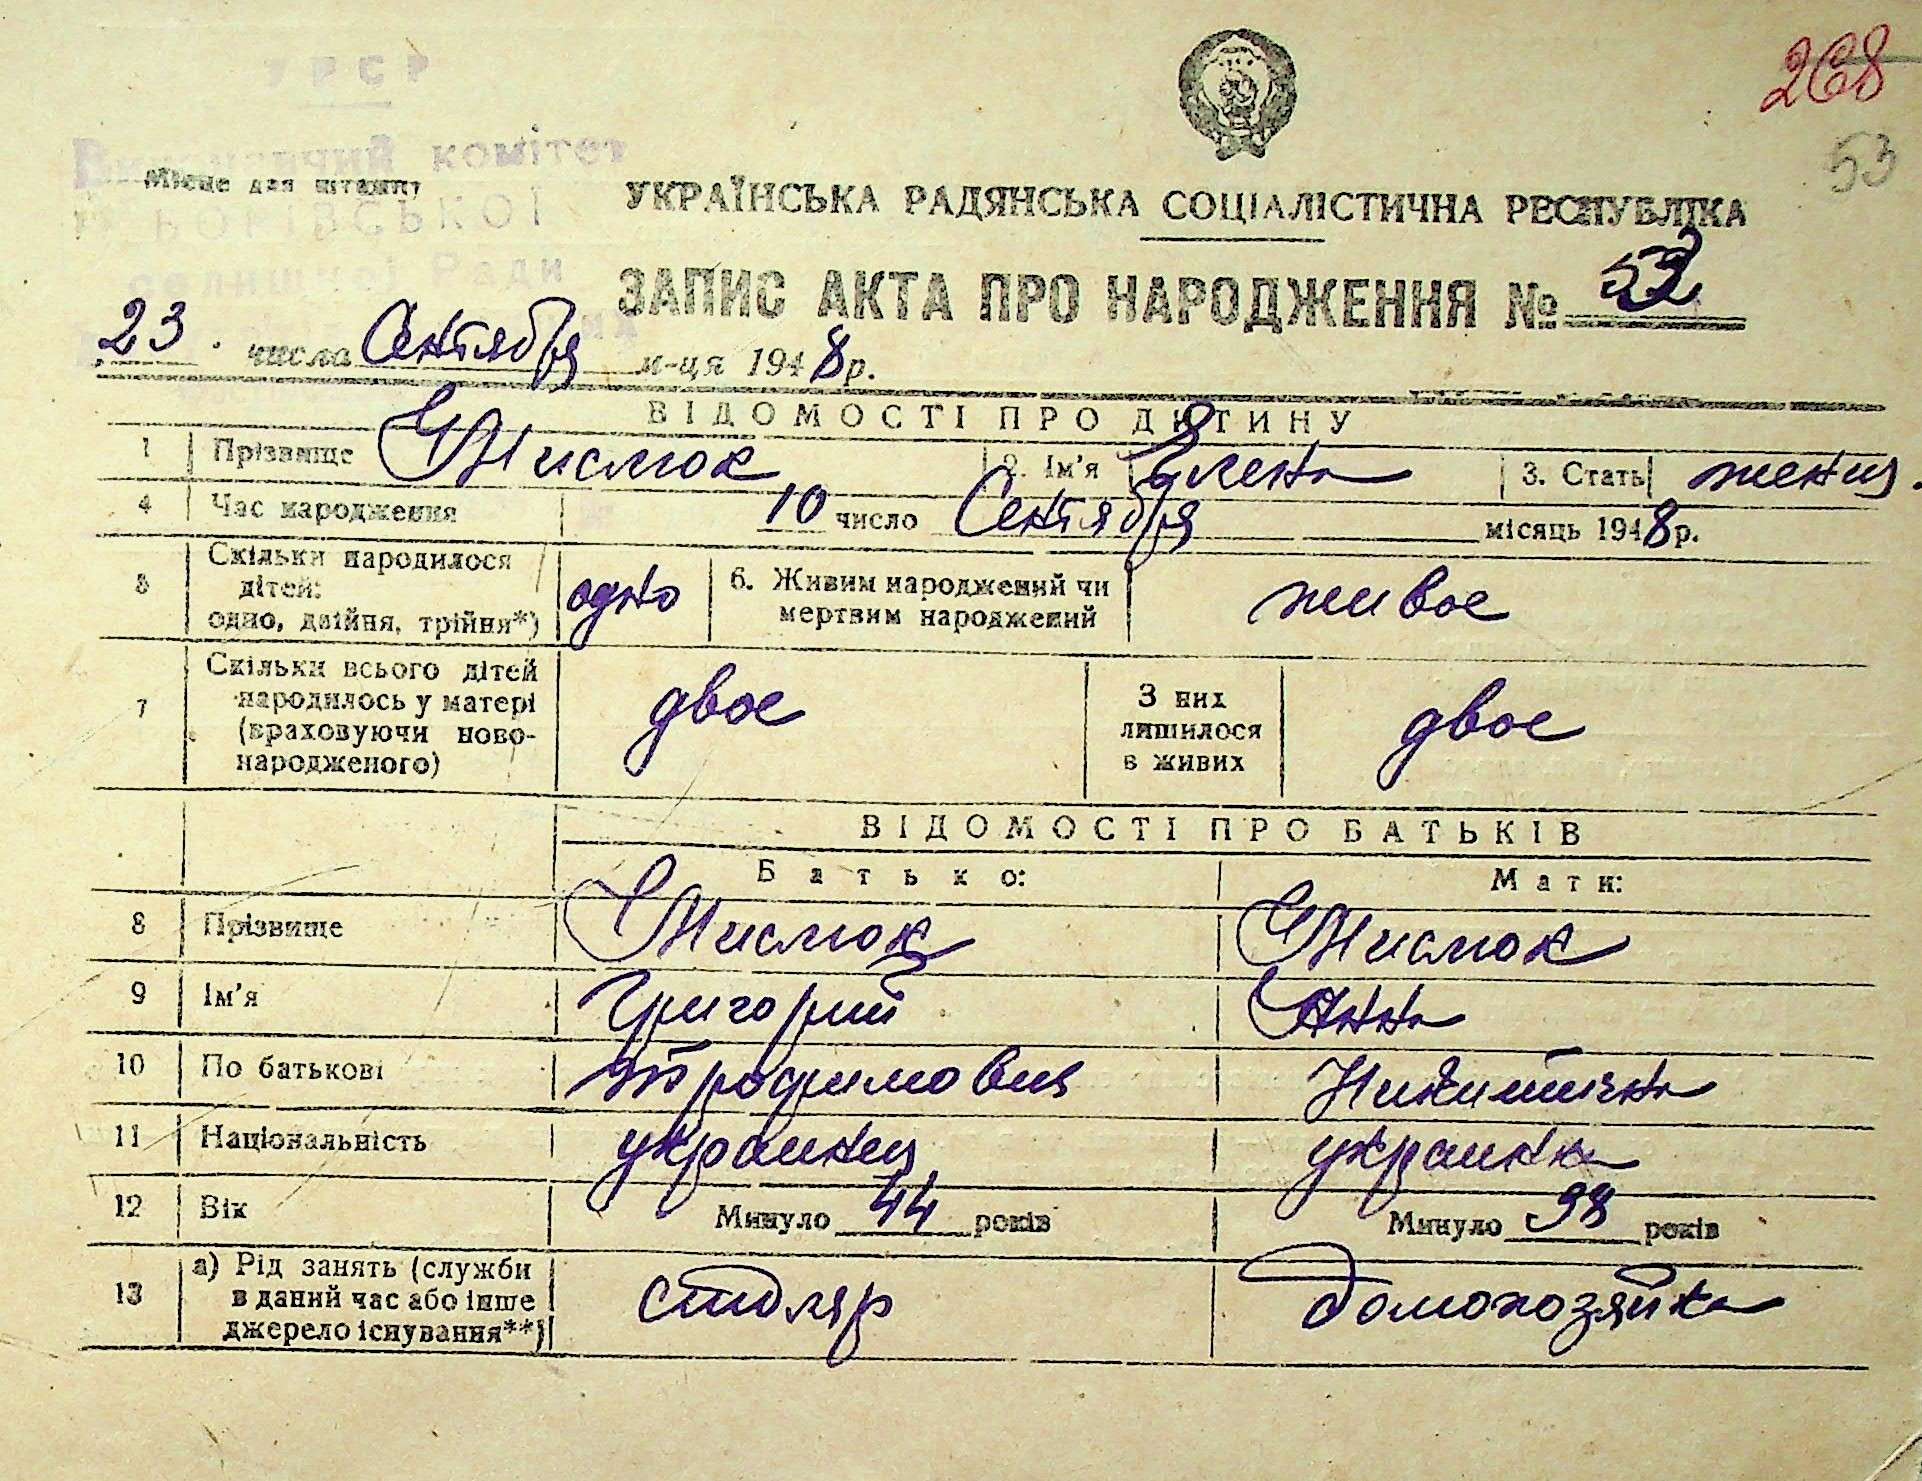 268
53
УРСР
Виконавчий комітет
Місце для штампу
селищної Ради
УКРАЇНСЬКА РАДЯНСЬКА СОЦІАЛІСТИЧНА РЕСПУБЛІКА
ЗАПИС АКТА ПРО НАРОДЖЕННЯ № 53
„23. числа Сентября м-ця 1948 р.
ВІДОМОСТІ ПРО ДИТИНУ
1 Прізвище 2. Ім'я Елена 3. Стать женщ.
4 Час народження 10 число Сентября місяць 1948 р.
5 Скільки народилося дітей: одно, двійня, трійня*) одно 6. Живим народжений чи мертвим народжений живое
7 Скільки всього дітей народилось у матері (враховуючи ново-народженого) двое З них лишилося в живих двое
ВІДОМОСТІ ПРО БАТЬКІВ
Батько: Мати:
8 Прізвище
9 Ім'я Григорий Анна
10 По батькові Трофимович Никитична
11 Національність украинец украинка
12 Вік Минуло 44 років Минуло 38 років
13 а) Рід занять (служби в даний час або інше джерело існування**) столяр домохозяйка